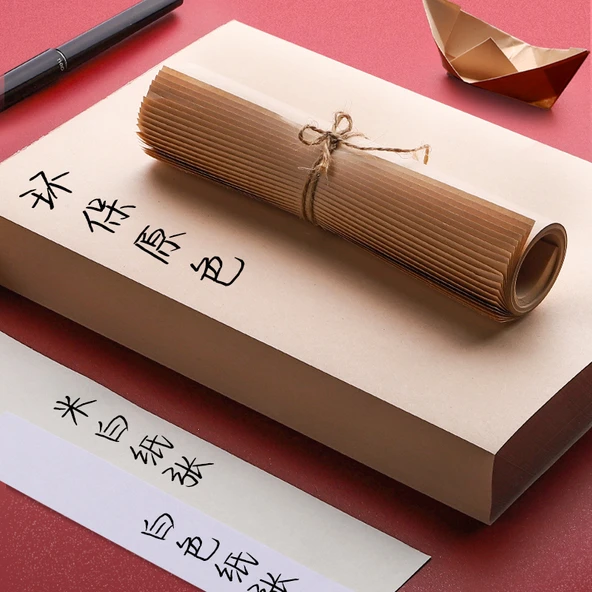 环保原色
米白纸张
白色纸张